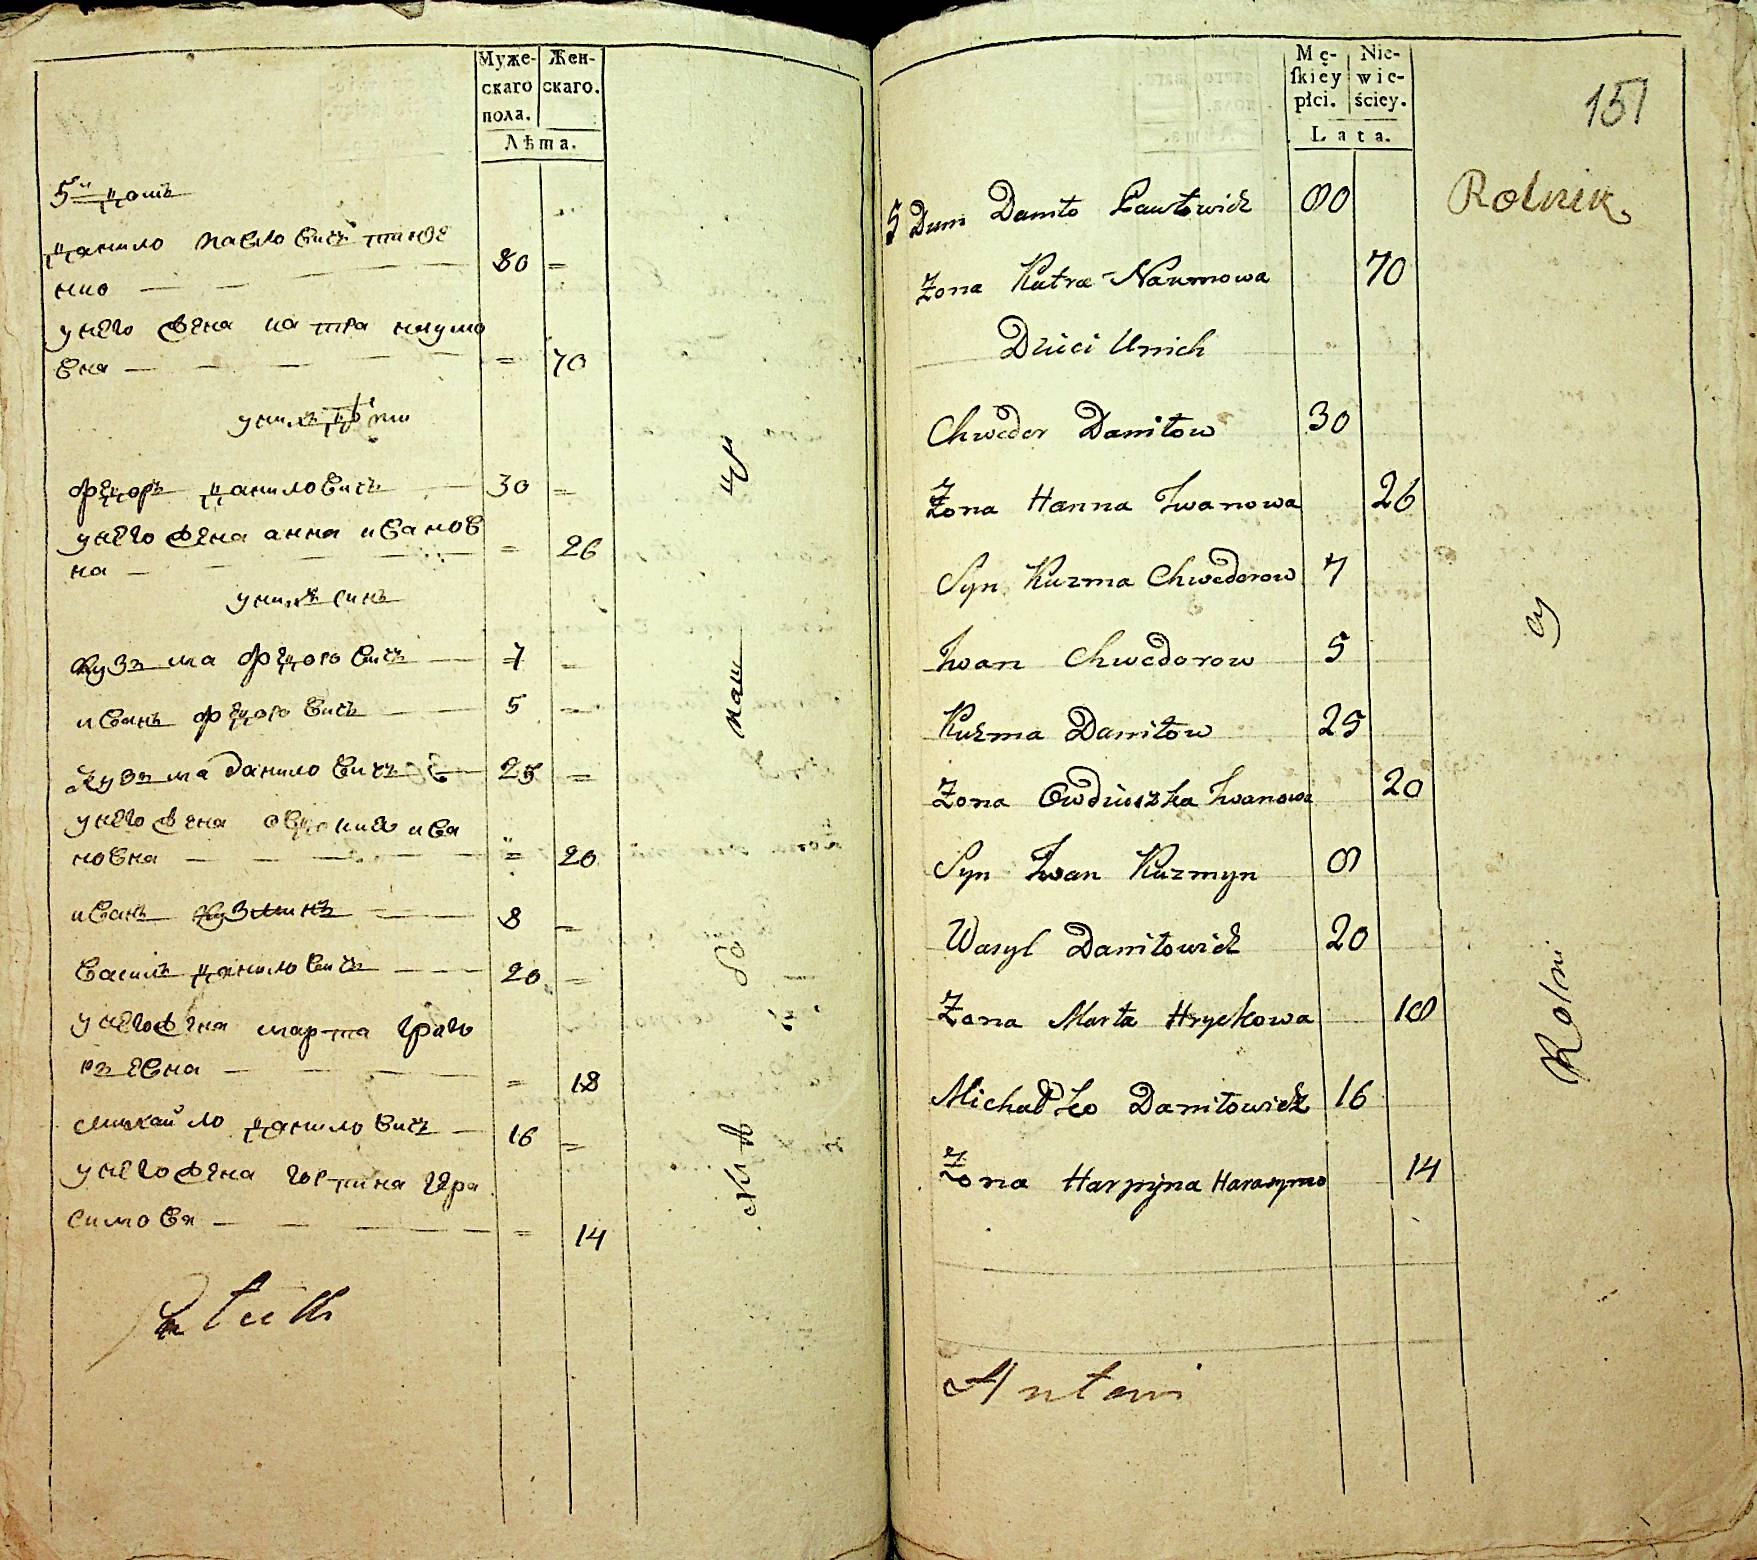 Муже-
скаго
пола.
Жен-
скаго.
Лѣта.
5й домъ
данило павловичъ
80 =
у него жена катра наумо
вна = 70
у нихъ дѣти
федоръ даниловичъ 30 =
у него жена анна иванов
на = 26
у нихъ синъ
кузьма федоровичъ 7 =
иванъ федоровичъ 5 =
кузьма даниловичъ 25 =
у него жена ива
новна = 20
иванъ кузминъ 8 =
василь даниловичъ 20 =
у него жена марта григо
рьевна = 18
михайло даниловичъ 16 =
у него жена гера
симова = 14
Mę-
skiey
płci.
Nie-
wie-
ściey.
Lata.
151
5 Dum Daniło Pawłowicz 80 Rolnik
Żona Katra Naumowa 70
Dzieci Unich
Chwedor Daniłow 30
Żona Hanna Iwanowa 26
Syn Kuzma Chwedorow 7
Iwan Chwedorow 5
Kuzma Daniłow 25
Żona Owdiuszka Iwanowa 20
Syn Iwan Kuzmyn 8
Wasyl Daniłowicz 20
Żona Marta Hryckowa 18
Michałko Daniłowicz 16
Żona Harpyna Harasymo 14
Antoni
Rolni
cy